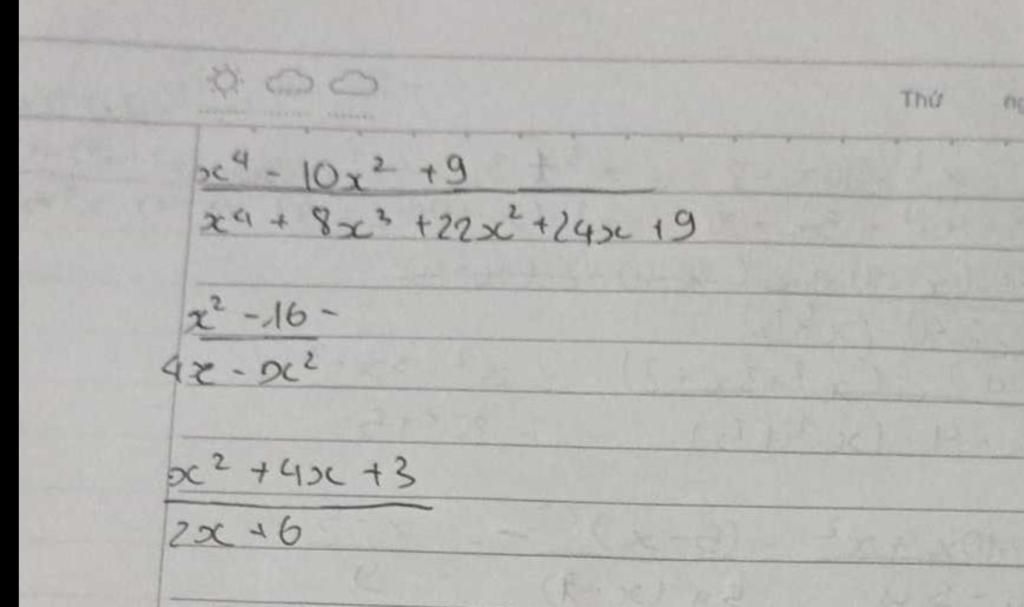 Thứ
x⁴ - 10x² + 9
x⁴ + 8x³ + 22x² + 24x + 9
x² - 16 -
4x - x²
x² + 4x + 3
2x + 6